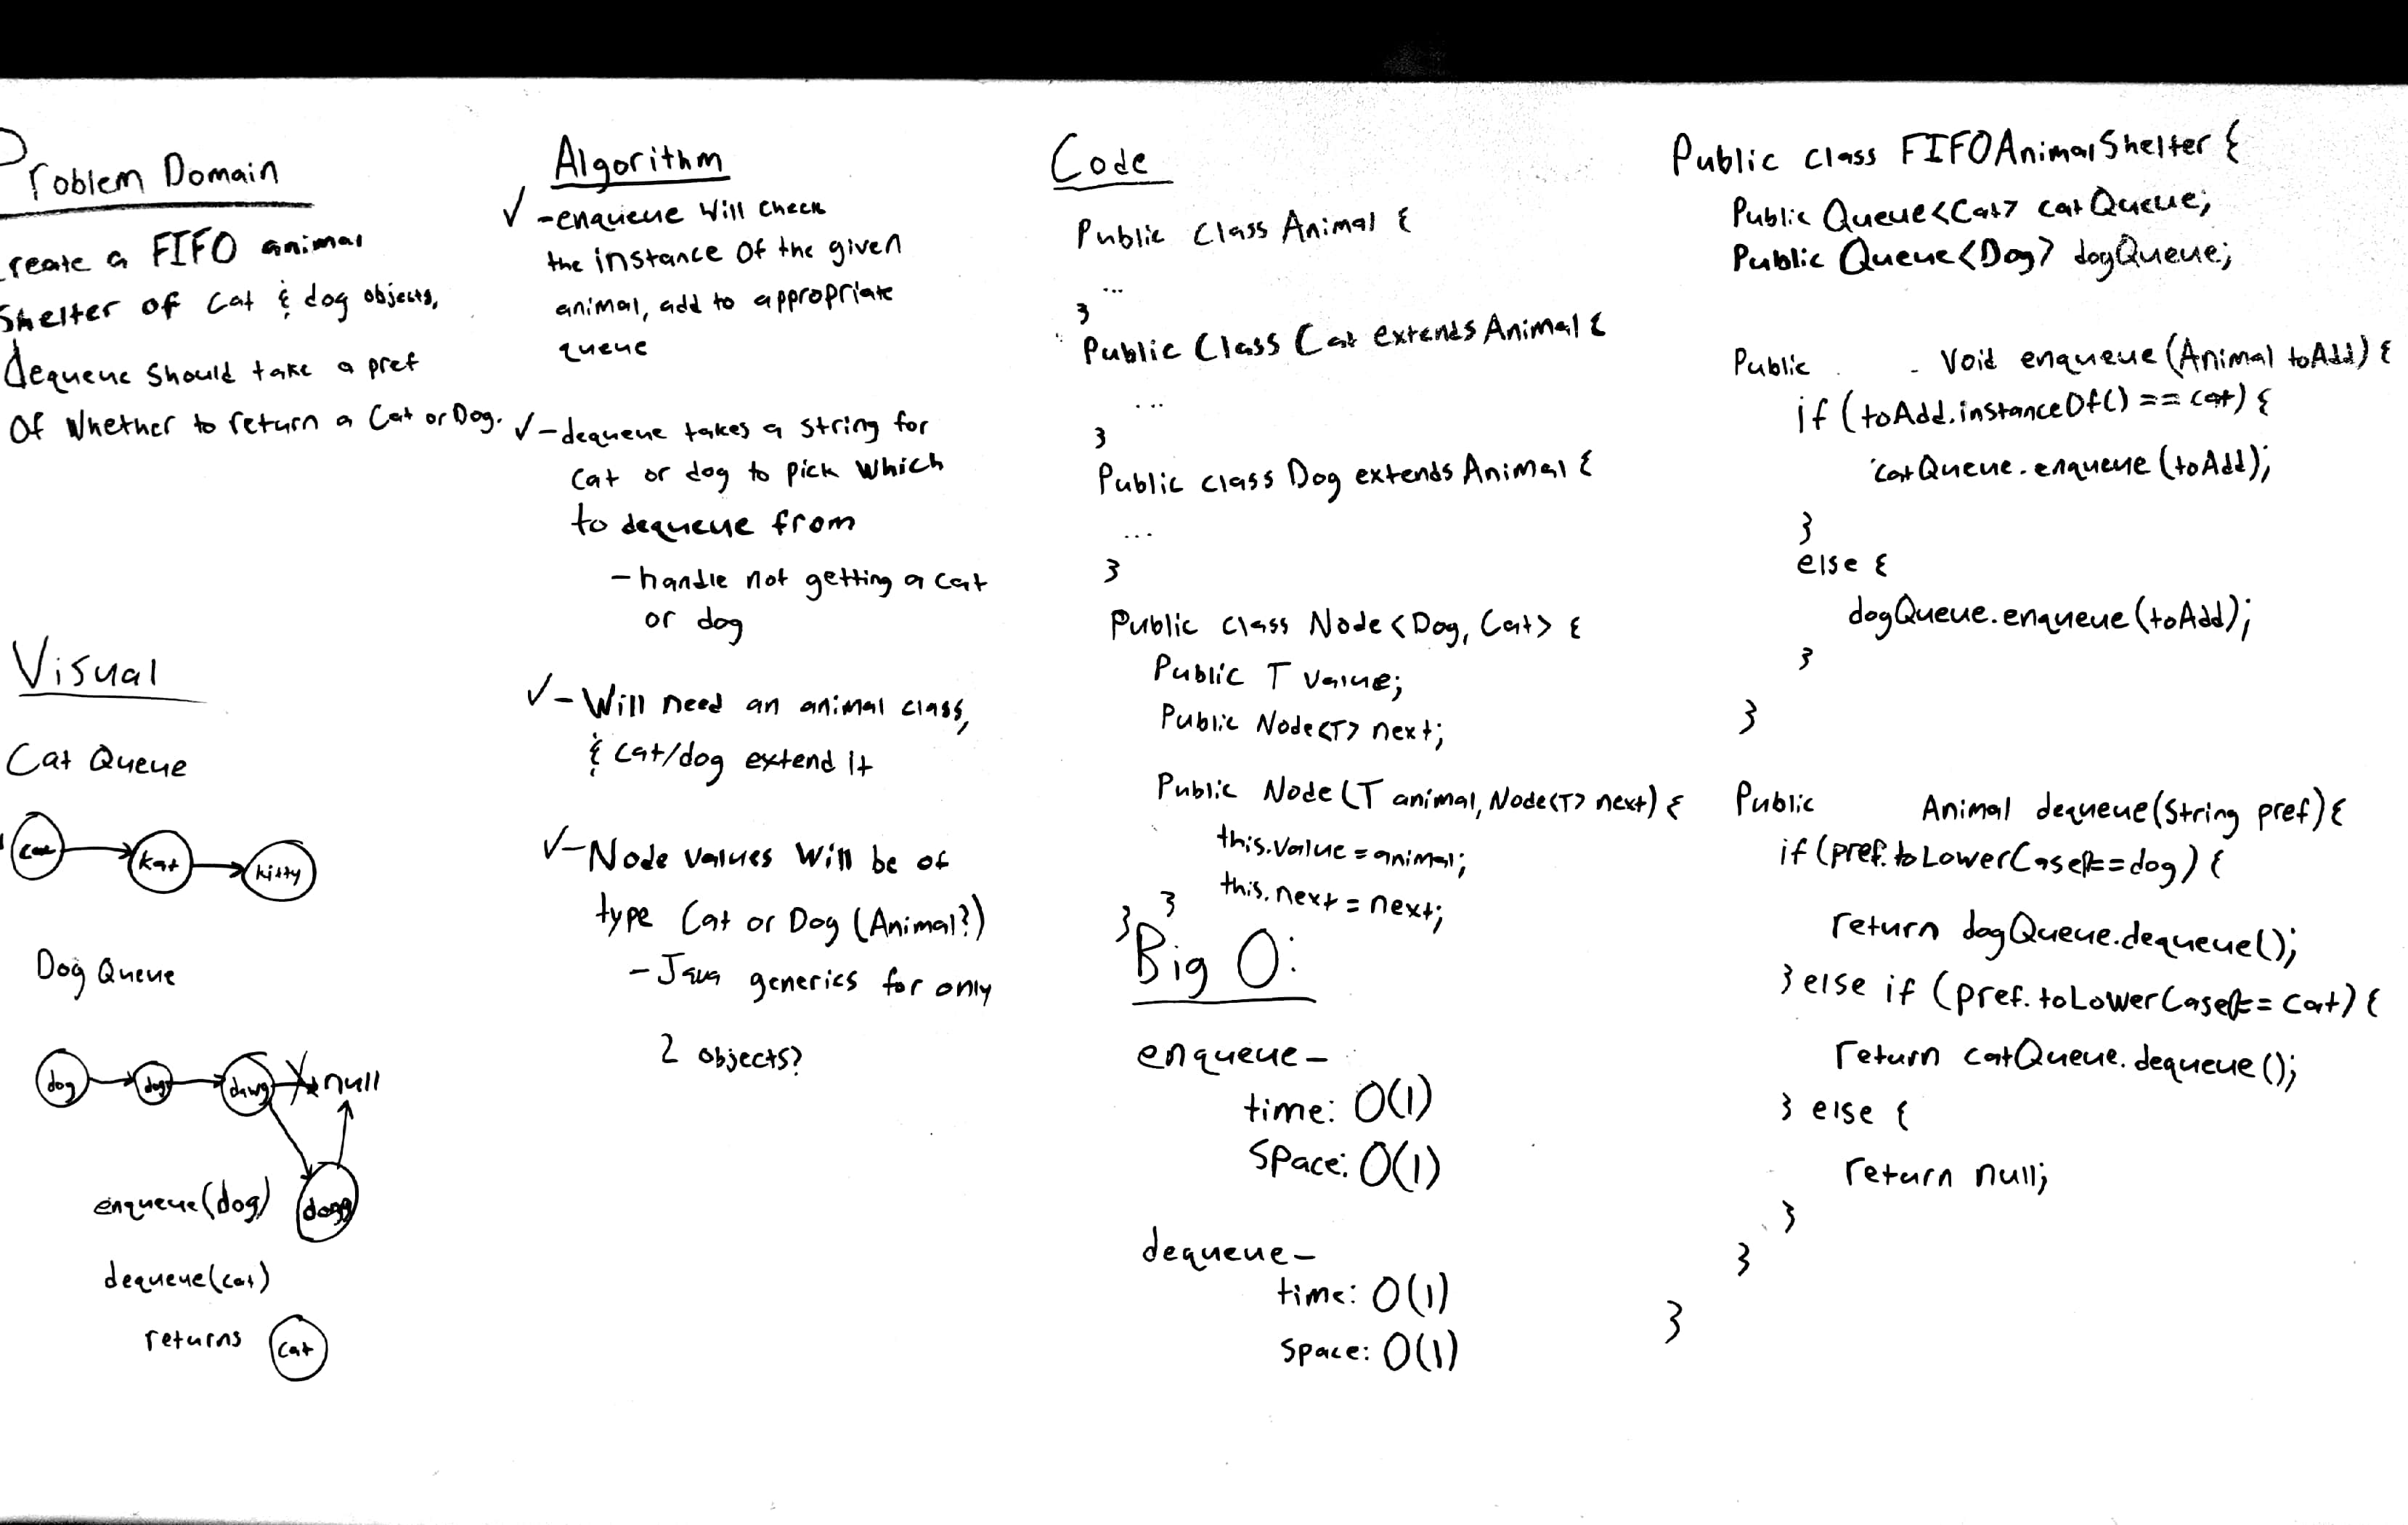 Problem Domain
Create a FIFO animal
Shelter of cat & dog objects,
dequeue should take a pref
Of whether to return a Cat or Dog.
Visual
Cat Queue
cat
kat
kitty
Dog Queue
dog
dawg
null
enqueue(dog)
dogg
dequeue(cat)
returns
cat
Algorithm
✓ - enqueue will check
the instance of the given
animal, add to appropriate
queue
✓ - dequeue takes a string for
cat or dog to pick which
to dequeue from
- handle not getting a cat
or dog
✓ - Will need an animal class,
& cat/dog extend it
✓ - Node values will be of
type Cat or Dog (Animal?)
- Java generics for only
2 objects?
Code
Public class Animal {
...
}
Public Class Cat extends Animal {
...
}
Public class Dog extends Animal {
...
}
Public class Node <Dog, Cat> {
Public T value;
Public Node<T> next;
Public Node (T animal, Node<T> next) {
this.value = animal;
this.next = next;
}
}
Big O:
enqueue -
time: O(1)
Space: O(1)
dequeue -
time: O(1)
space: O(1)
Public class FIFOAnimalShelter {
Public Queue<Cat> catQueue;
Public Queue<Dog> dogQueue;
Public Void enqueue (Animal toAdd) {
if (toAdd.instanceOf() == cat) {
catQueue.enqueue (toAdd);
}
else {
dogQueue.enqueue (toAdd);
}
}
Public Animal dequeue(String pref) {
if (pref.toLowerCase() == dog) {
return dogQueue.dequeue();
} else if (pref.toLowerCase() == cat) {
return catQueue.dequeue();
} else {
return null;
}
}
}